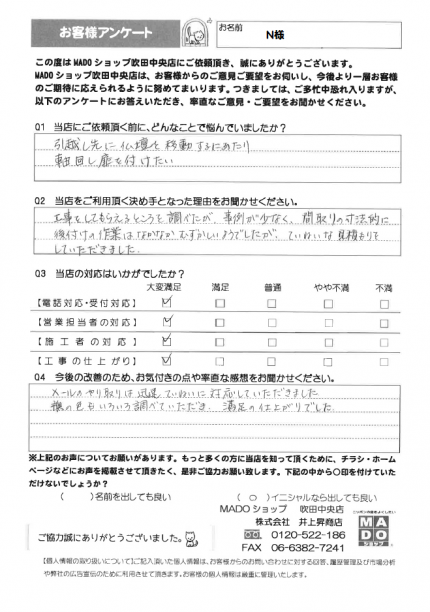 お客様アンケート
お名前
N様
この度はMADOショップ吹田中央店にご依頼頂き、誠にありがとうございます。
MADOショップ吹田中央店は、お客様からのご意見ご要望をお伺いし、今後より一層お客様
のご期待に応えられるように努めてまいります。つきましては、ご多忙中恐れ入りますが、
以下のアンケートにお答えいただき、率直なご意見・ご要望をお聞かせください。
Q1 当店にご依頼頂く前に、どんなことで悩んでいましたか?
引越し先に仏壇を移動するにあたり
軸回し扉を付けたい
Q2 当店をご利用頂く決め手となった理由をお聞かせください。
工事をしてもらえるところを調べたが、事例が少なく、間取りの寸法的に
後付けの作業はなかなかむずかしいようでしたが、ていねいな見積もりを
していただきました。
Q3 当店の対応はいかがでしたか?
大変満足 満足 普通 やや不満 不満
【電話対応・受付対応】
【営業担当者の対応】
【施工者の対応】
【工事の仕上がり】
Q4 今後の改善のため、お気付きの点や率直な感想をお聞かせください。
メールのやり取りは迅速ていねいに対応していただきました
襖の色もいろいろ調べていただき、満足の仕上がりでした。
※上記のお声についてお願いがあります。もっと多くの方に当店を知って頂くために、チラシ・ホーム
ページなどにお声を掲載させて頂きたく、是非ご協力お願い致します。下記の中から〇印を付けていた
だけないでしょうか?
( )名前を出しても良い ( ○ )イニシャルなら出しても良い
MADOショップ 吹田中央店
株式会社 井上昇商店
0120-522-186
FAX 06-6382-7241
MADO
ショップ
ご協力誠にありがとうございました。
【個人情報の取り扱いについて】ご記入頂いた個人情報は、お客様からのお問い合わせに対する回答、履歴管理及び市場分析
や弊社の広告宣伝のために利用させて頂きます。お客様の個人情報は厳重に管理いたします。